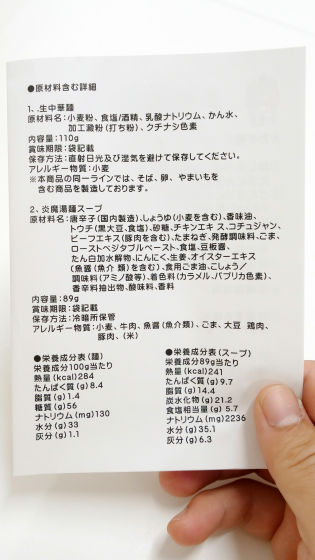 ●原材料含む詳細
1、.生中華麺
原材料名：小麦粉、食塩/酒精、乳酸ナトリウム、かん水、
加工澱粉（打ち粉）、クチナシ色素
内容量：110g
賞味期限：袋記載
保存方法：直射日光及び湿気を避けて保存してください。
アレルギー物質：小麦
※本商品の同一ラインでは、そば、卵、やまいもを
含む商品を製造しております。
2、炎魔湯麺スープ
原材料名：唐辛子（国内製造）、しょうゆ（小麦を含む）、香味油、
トウチ（黒大豆、食塩）、砂糖、チキンエキス、コチュジャン、
ビーフエキス（豚肉を含む）、たまねぎ、発酵調味料、ごま、
ローストベジタブルペースト、食塩、豆板醤、
たん白加水解物、にんにく、生姜、オイスターエキス
（魚醤（魚介類）を含む）、食用ごま油、こしょう／
調味料（アミノ酸等）、着色料（カラメル、パプリカ色素）、
香辛料抽出物、酸味料、香料
内容量：89g
賞味期限：袋記載
保存方法：冷暗所保管
アレルギー物質：小麦、牛肉、魚醤（魚介類）、ごま、大豆 鶏肉、
豚肉、（米）
●栄養成分表（麺）
栄養成分100g当たり
熱量（kcal）284
たんぱく質（g）8.4
脂質（g）1.4
糖質（g）56
ナトリウム（mg）130
水分（g）33
灰分（g）1.1
●栄養成分表（スープ）
栄養成分89g当たり
熱量（kcal）241
たんぱく質（g）9.7
脂質（g）14.4
炭水化物（g）21.2
食塩相当量（g）5.7
ナトリウム（mg）2236
水分（g）35.1
灰分（g）6.3